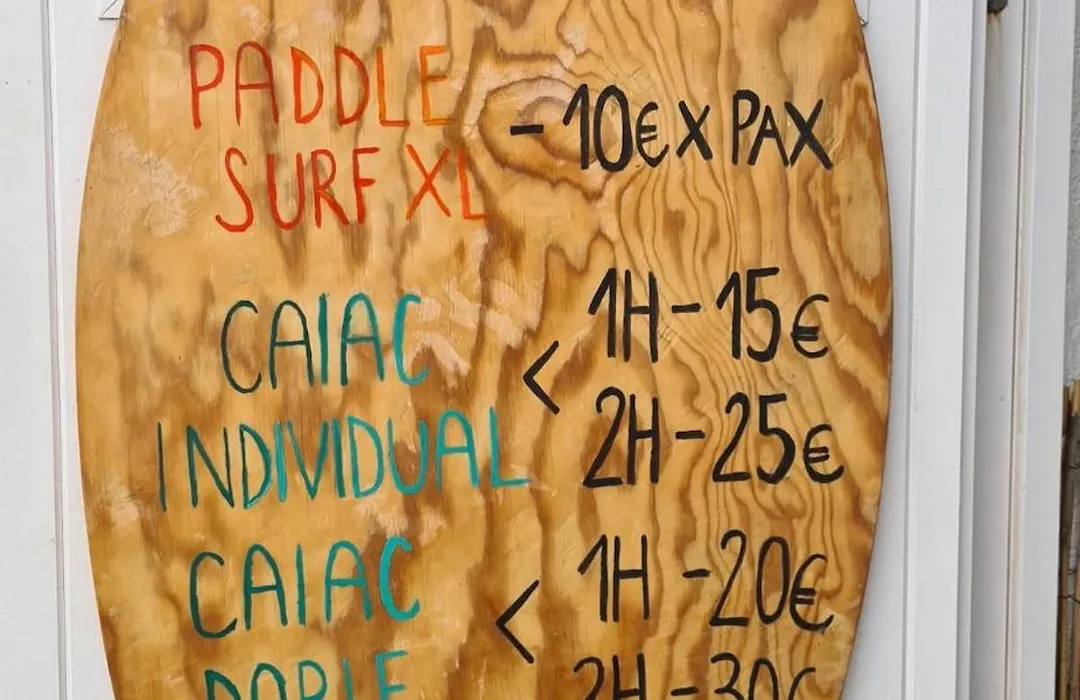 PADDLE
SURF XL - 10€ X PAX
CAIAC
INDIVIDUAL
< 1H - 15€
2H - 25€
CAIAC
DOBLE
< 1H - 20€
2H - 30€